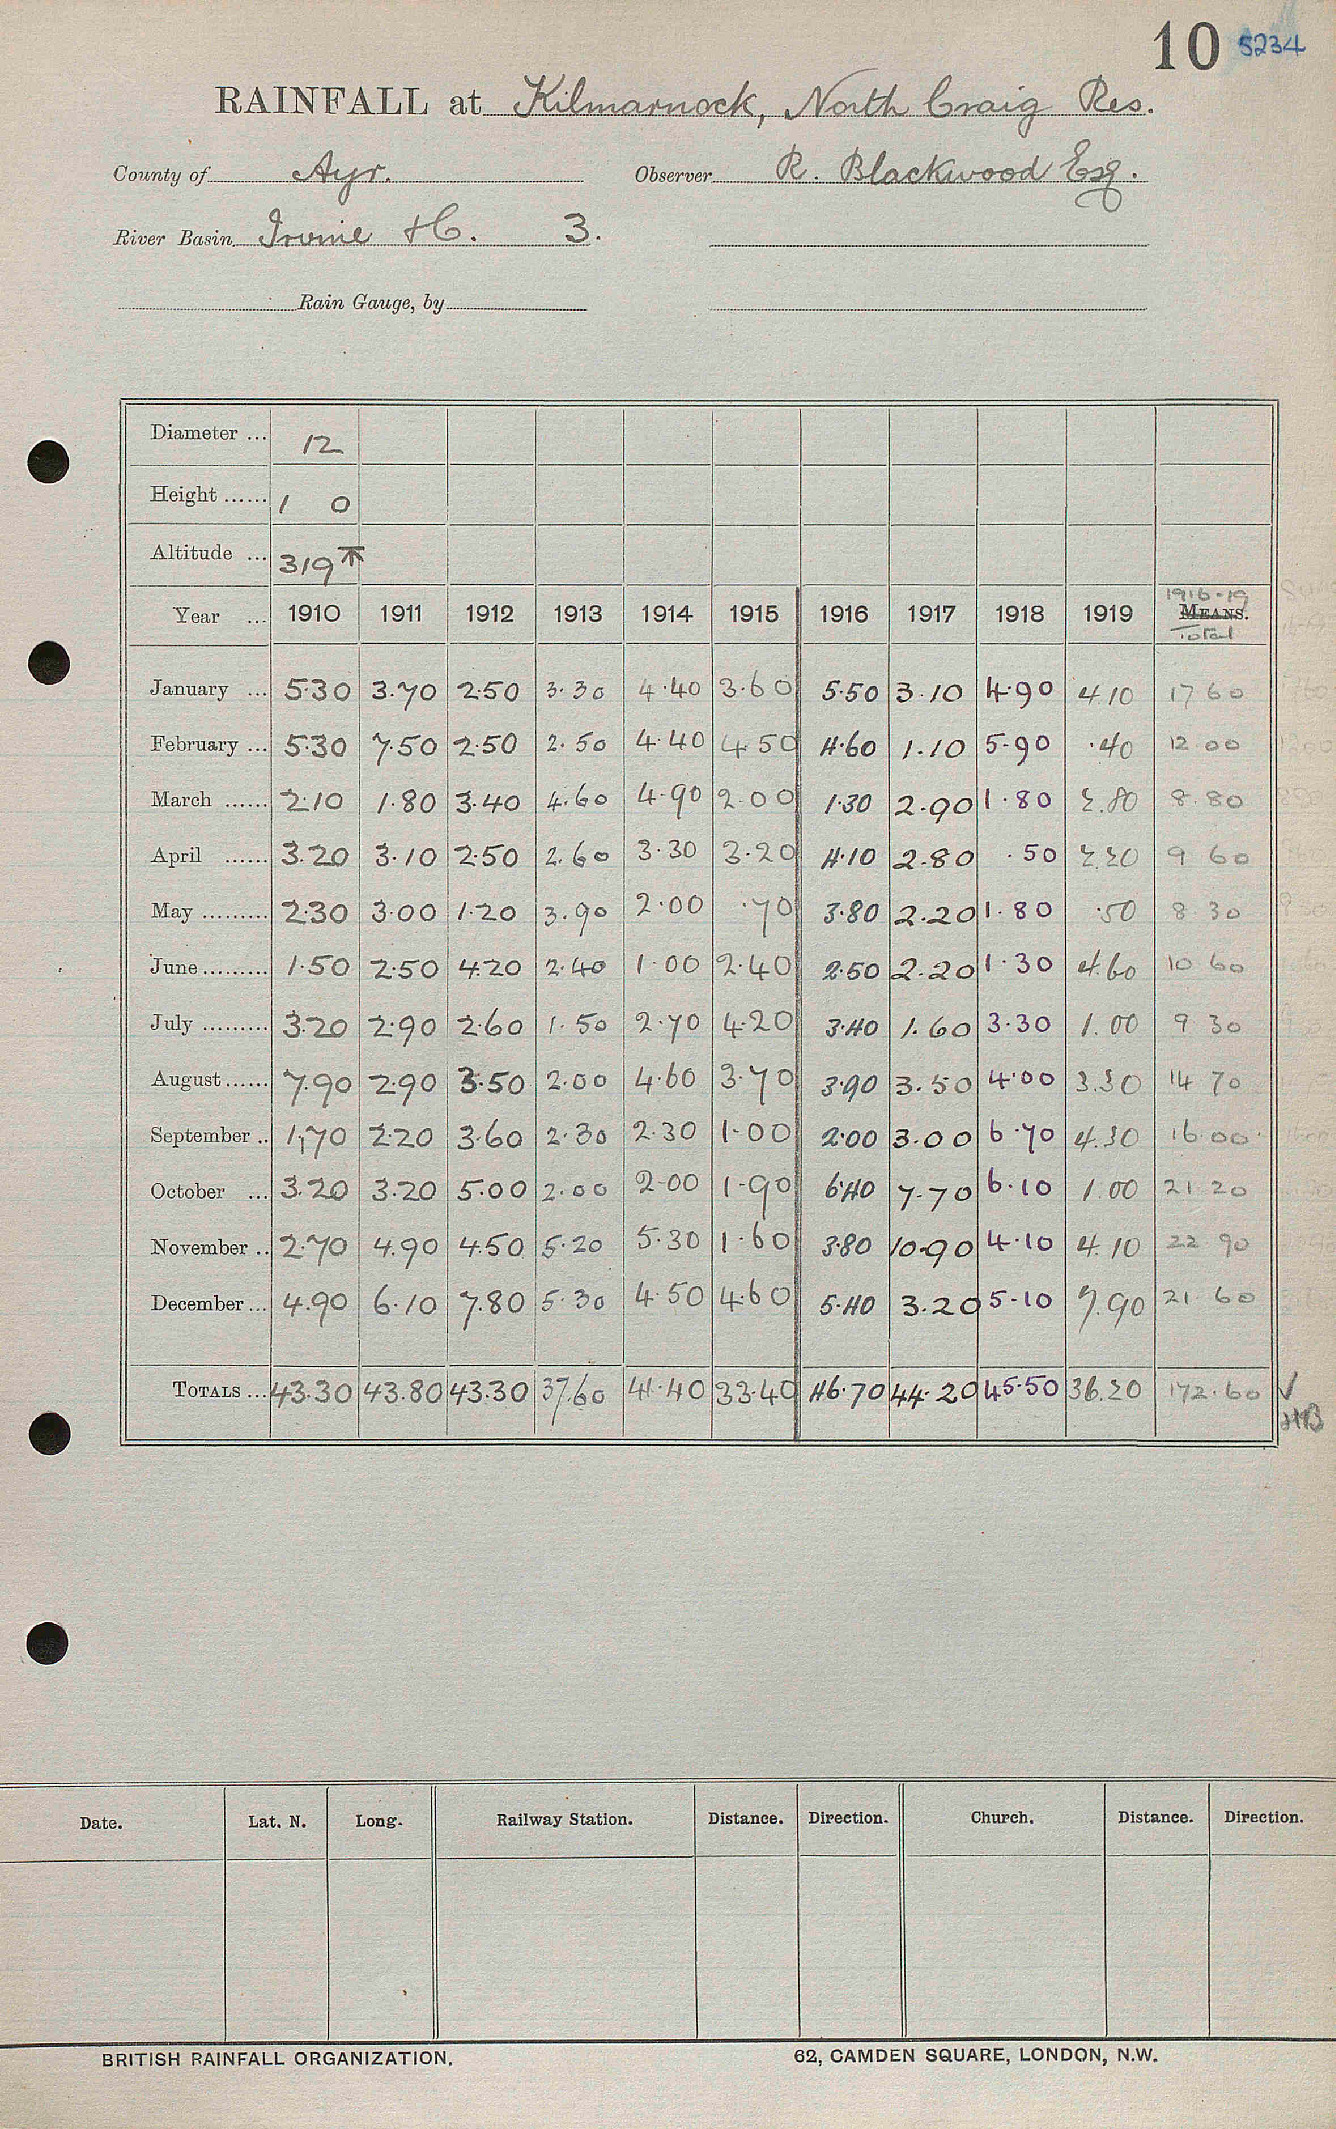 10 5234
RAINFALL at Kilmarnock, North Craig Res.
County of Ayr. Observer R. Blackwood Esq.
River Basin Irvine &C. 3.
Rain Gauge, by
Diameter ... 12
Height ...... 1 0
Altitude ... 319
1916-19
Year ... 1910 1911 1912 1913 1914 1915 1916 1917 1918 1919 MEANS.
Total
January ... 5.30 3.70 2.50 3.30 4.40 3.60 5.50 3.10 4.90 4.10 17 60
February ... 5.30 7.50 2.50 2.50 4.40 4 50 4.60 1.10 5.90 .40 12 00
March ...... 2.10 1.80 3.40 4.60 4.90 2.00 1.30 2.90 1.80 2.80 8.80
April ...... 3.20 3.10 2.50 2.60 3.30 3.20 4.10 2.80 .50 2.20 9 60
May ......... 2.30 3.00 1.20 3.90 2.00 .70 3.80 2.20 1.80 .50 8 30
June ......... 1.50 2.50 4.20 2.40 1 00 2.40 2.50 2.20 1.30 4.60 10 60
July ......... 3.20 2.90 2.60 1.50 2.70 4.20 3.40 1.60 3.30 1.00 9 30
August ...... 7.90 2.90 3.50 2.00 4.60 3.70 3.90 3.50 4.00 3.30 14 70
September .. 1.70 2.20 3.60 2.30 2.30 1.00 2.00 3.00 6.70 4.30 16 00
October ... 3.20 3.20 5.00 2.00 2.00 1.90 6.40 7.70 6.10 1.00 21 20
November .. 2.70 4.90 4.50 5.20 5.30 1.60 3.80 10.90 4.10 4.10 22 90
December ... 4.90 6.10 7.80 5.30 4.50 4.60 5.40 3.20 5.10 7.90 21 60
TOTALS ... 43.30 43.80 43.30 37.60 41.40 33.40 46.70 44.20 45.50 36.20 172.60 ✓
Date. Lat. N. Long. Railway Station. Distance. Direction. Church. Distance. Direction.
BRITISH RAINFALL ORGANIZATION. 62, CAMDEN SQUARE, LONDON, N.W.